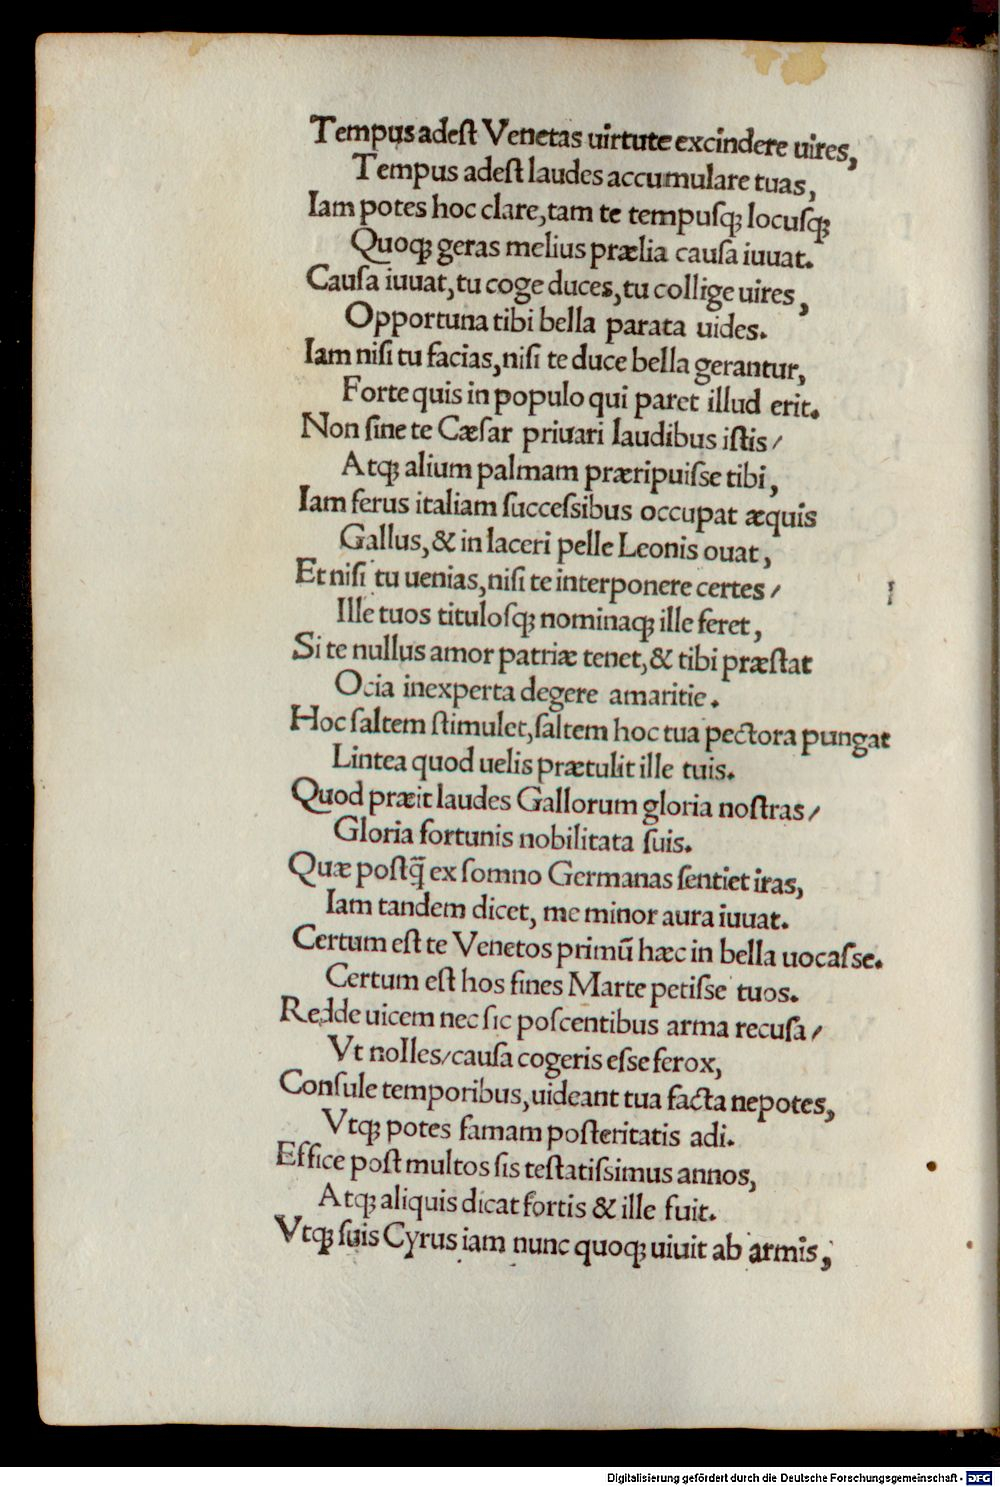 Tempus adeſt Venetas uirtute excindere uires,
Tempus adeſt laudes accumulare tuas,
Iam potes hoc clare, tam te tempuſqꝫ locuſqꝫ
Quoqꝫ geras melius prælia cauſa iuuat.
Cauſa iuuat, tu coge duces, tu collige uires,
Opportuna tibi bella parata uides.
Iam niſi tu facias, niſi te duce bella gerantur,
Forte quis in populo qui paret illud erit.
Non ſine te Cæſar priuari laudibus iſtis/
Atqꝫ alium palmam præripuiſse tibi,
Iam ferus italiam ſucceſsibus occupat æquis
Gallus, & in laceri pelle Leonis ouat,
Et niſi tu uenias, niſi te interponere certes/
Ille tuos tituloſqꝫ nominaqꝫ ille feret,
Si te nullus amor patriæ tenet, & tibi præſtat
Ocia inexperta degere amaritie.
Hoc ſaltem ſtimulet, ſaltem hoc tua pectora pungat
Lintea quod uelis prætulit ille tuis.
Quod præit laudes Gallorum gloria noſtras/
Gloria fortunis nobilitata ſuis.
Quæ poſtq̃ ex ſomno Germanas ſentiet iras,
Iam tandem dicet, me minor aura iuuat.
Certum eſt te Venetos primũ hæc in bella uocaſse.
Certum eſt hos fines Marte petiſse tuos.
Redde uicem nec ſic poſcentibus arma recuſa/
Vt nolles/cauſa cogeris eſse ferox,
Conſule temporibus, uideant tua facta nepotes,
Vtqꝫ potes famam poſteritatis adi.
Effice poſt multos ſis teſtatiſsimus annos,
Atqꝫ aliquis dicat fortis & ille fuit.
Vtqꝫ ſuis Cyrus iam nunc quoqꝫ uiuit ab armis,
Digitalisierung gefördert durch die Deutsche Forschungsgemeinschaft - DFG